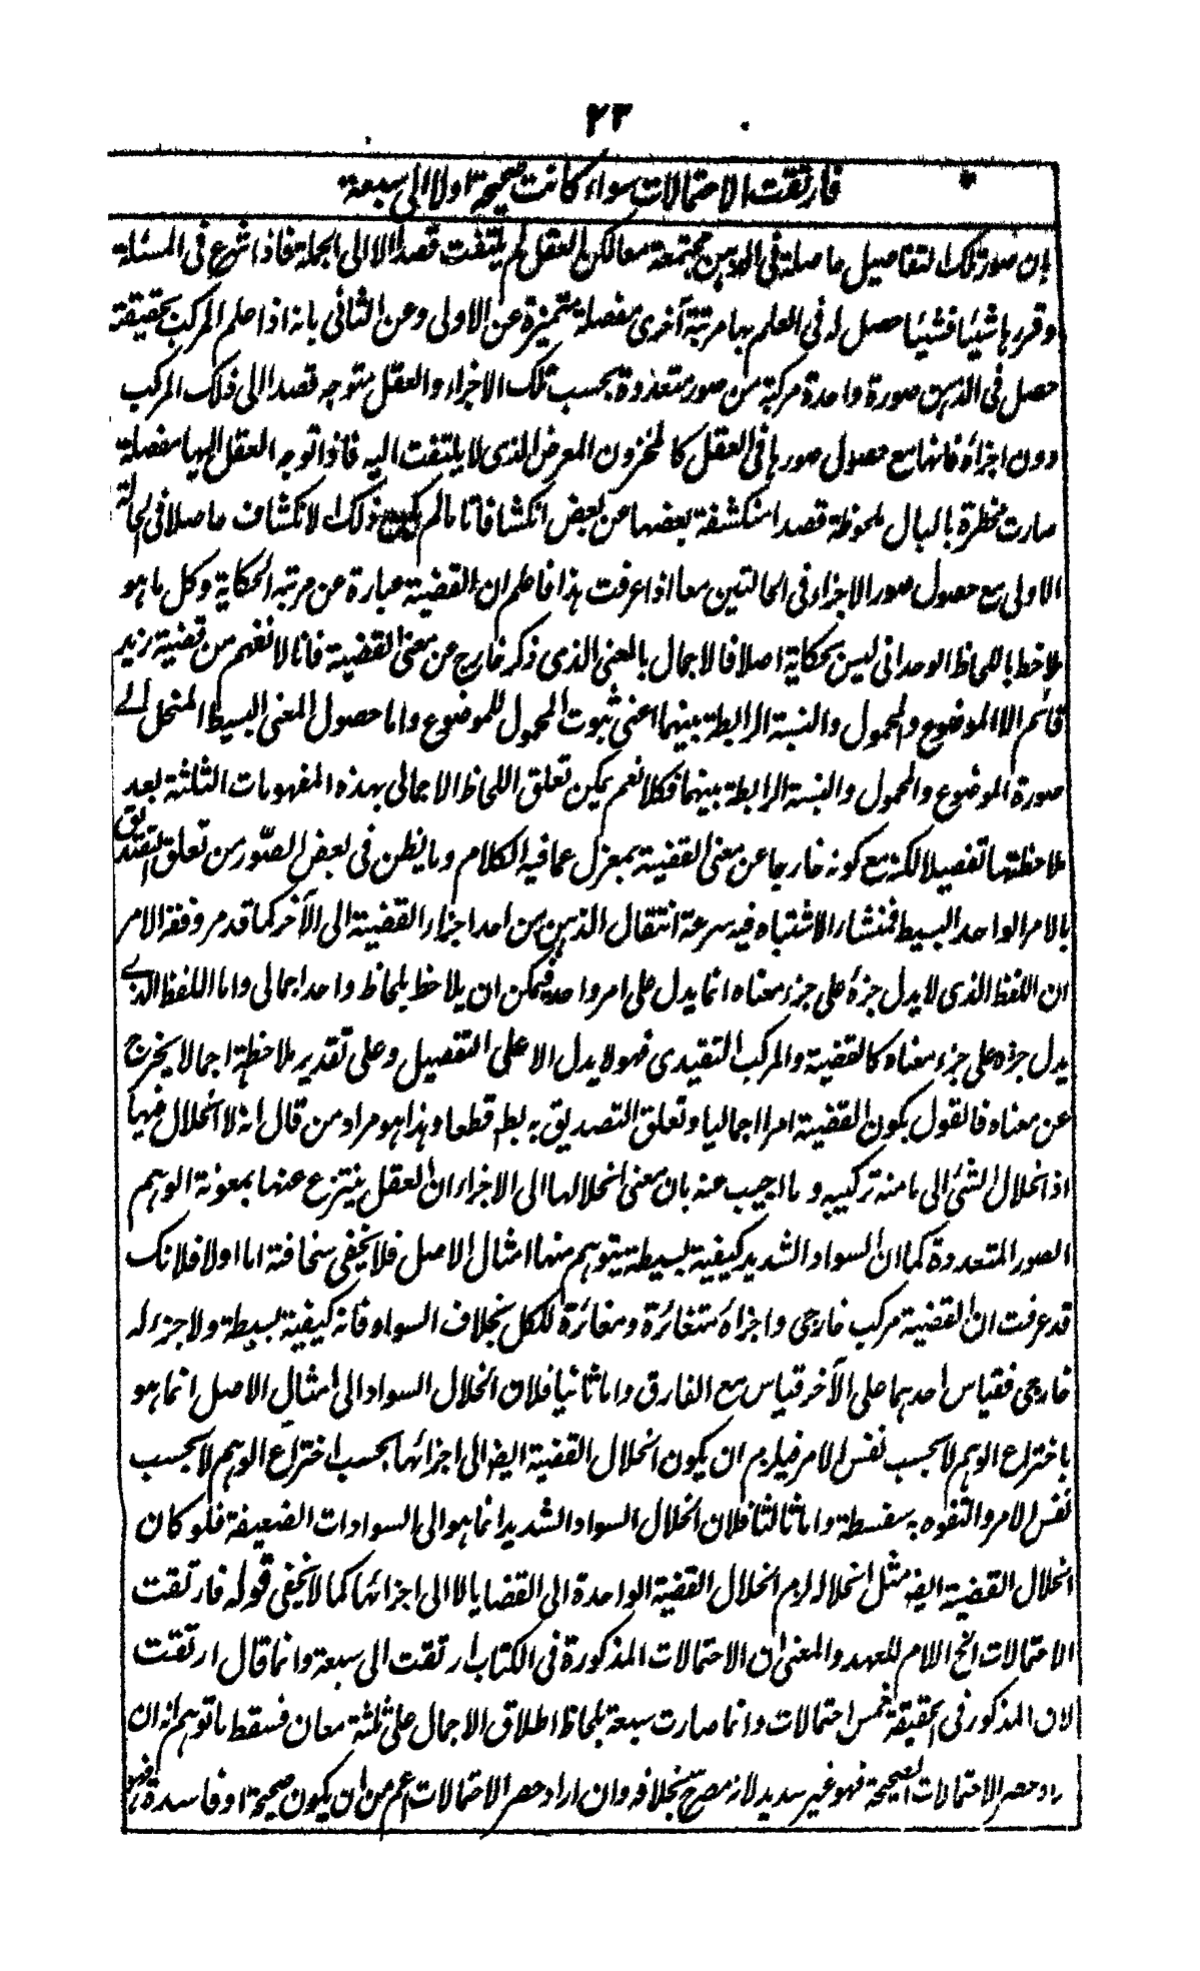 ٢٣
فارتقت الاحتمالات سواء كانت صحيحة اولا الى سبعة
ان صورة تلك التفاصيل حاصلة فى الذهن مجتمعة معا لكن العقل لم يلتفت قصدا الا الى الجملة فاذا شرع فى المسئلة
وقررها شيئا فشيئا حصل له فى العلم بها مرتبة آخرى مفصلة متميزة عن الاولى وعن الثانى بانه اذا علم المركب بحقيقته
حصل فى الذهن صورة واحدة مركبة من صور متعددة بحسب تلك الاجزاء والعقل متوجه قصدا الى ذلك المركب
دون اجزائه فانها مع حصول صورها فى العقل كالمخزون المعرض الذى لا يلتفت اليه فاذا توجه العقل اليها مفصلة
صارت مخطرة بالبال ملحوظة قصدا منكشفة بعضها عن بعض انكشافا تاما لم يكن ذلك الانكشاف حاصلا فى الحالة
الاولى مع حصول صور الاجزاء فى الحالتين معا اذا عرفت هذا فاعلم ان القضية عبارة عن مرتبة الحكاية وكل ما هو
ملاحظ باللحاظ الوحدانى ليس بحكاية اصلا فالاجمال بالمعنى الذى ذكر خارج عن معنى القضية فانا لا نفهم من قضية زيد
قائم الا الموضوع والمحمول والنسبة الرابطة بينهما اعنى ثبوت المحمول للموضوع واما حصول المعنى البسيط المنحل الے
صورة الموضوع والمحمول والنسبة الرابطة بينهما فكلا نعم يمكن تعلق اللحاظ الاجمالى بهذه المفهومات الثلثة بعد
ملاحظتها تفصيلا لكنه مع كونه خارجا عن معنى القضية بمعزل عما فيه الكلام وما يظن فى بعض الصور من تعلق التصديق
بالامر الواحد البسيط فمنشاء الاشتباه فيه سرعة انتقال الذهن من احد اجزاء القضية الى الآخر كما قد مر وفقه الامر
ان اللفظ الذى لا يدل جزءه على جزء معناه انما يدل على امر واحد فيمكن ان يلاحظ بلحاظ واحد اجمالى واما اللفظ الذے
يدل جزءه على جزء معناه كالقضية والمركب التقيدى فهو لا يدل الا على التفصيل وعلى تقدير ملاحظته اجمالا يخرج
عن معناه فالقول بكون القضية امرا اجماليا وتعلق التصديق به بط قطعا وهذا هو مراد من قال انه لا انحلال فيها
اذ انحلال الشئ الى ما منه تركيبه وما اجيب عنه بان معنى انحلالها الى الاجزاء ان العقل ينتزع عنها بمعونة الوهم
الصور المتعددة كما ان السواد الشديد كيفية بسيطة يتوهم منها امثال الاصل فلا يخفى سخافته اما اولا فلانك
قد عرفت ان القضية مركب خارجى واجزاءه متغائرة ومغائرة للكل بخلاف السواد فانه كيفية بسيطة ولا جزء له
خارجى فقياس احدهما على الآخر قياس مع الفارق واما ثانيا فلان انحلال السواد الى امثال الاصل انما هو
باختراع الوهم لا بحسب نفس الامر فيلزم ان يكون انحلال القضية ايضا الى اجزائها بحسب اختراع الوهم لا بحسب
نفس الامر والتفوه به سفسطة واما ثالثا فلان انحلال السواد الشديد انما هو الى السوادات الضعيفة فلو كان
انحلال القضية ايضا مثل انحلاله لزم انحلال القضية الواحدة الى القضايا لا الى اجزائها كما لا يخفى قوله فارتقت
الاحتمالات الخ اللام للعهد والمعنى ان الاحتمالات المذكورة فى الكتاب ارتقت الى سبعة وانما قال ارتقت
لان المذكور فى الحقيقة خمس احتمالات وانما صارت سبعة بلحاظ اطلاق الاجمال على ثلثة معان فسقط ما توهم انه ان
راد حصر الاحتمالات الصحيحة فهو غير سديد لانه مصرح بخلافه وان اراد حصر الاحتمالات اعم من ان يكون صحيحة او فاسدة فهو